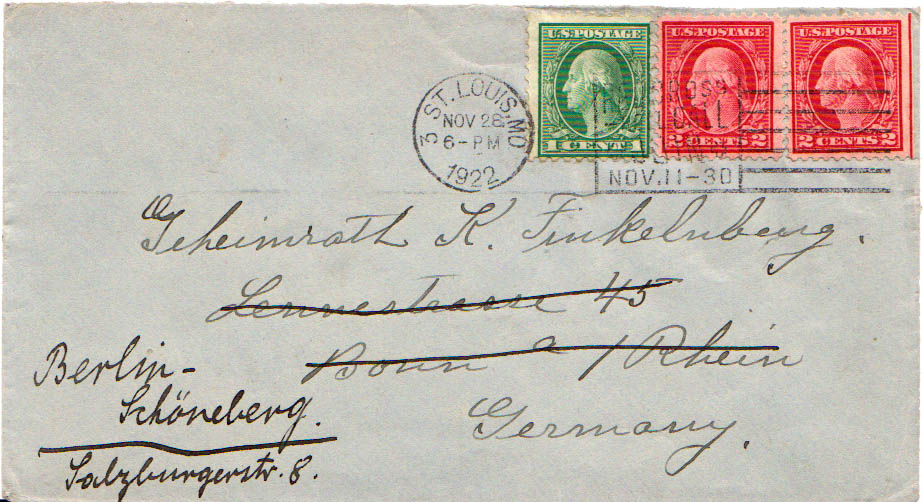 U.S. POSTAGE
1 CENT 1
U.S. POSTAGE
2 CENTS 2
U.S. POSTAGE
2 CENTS 2
ST. LOUIS, MO
3
NOV 28
6-PM
1922
CROSS
ROLL
NOV. 11-30
Geheimrath K. Finkelnburg.
Lennestrasse 45
Bonn a / Rhein
Germany.
Berlin-
Schöneberg.
Salzburgerstr. 8.